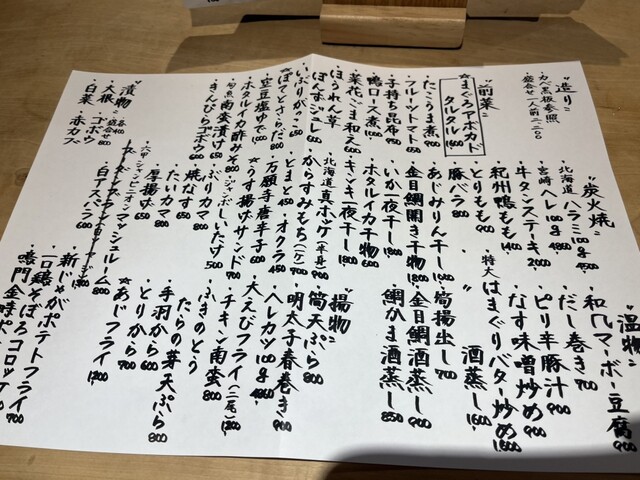 造り
カベ黒板参照
盛合せ一人前二二〇〇
前菜
☆まぐろアボカド
タルタル 1600
・たこうま煮 900
・フルーツトマト 650
・子持ち昆布 950
・鴨ロース煮 1000
・菜花ごま和え 600
・ほうれん草
ぽんずジュレ 600
・いぶりがっこ
☆ぽてとさらだ 800
・空豆塩ゆで 1,000
・ホタルイカ酢みそ 800
・南蛮漬け 650
・きんぴらゴボウ 600
漬物
各400
盛合せ 800
・大根 ・ゴボウ
・白菜 ・赤カブ
炭火焼
・北海道ハラミ100g 4500
・宮崎ヘレ100g 4860
・牛タンステーキ 2000
・紀州鴨もも 1400
・とりもも 900
・豚バラ 800
・あじみりん干し 1000
・金目鯛開き干物 1800
・いか一夜干し 1800
・ホタルイカ干物 600
・キンキ一夜干し 1800
・北海道真ホッケ(半身) 900
・からすみもち(二ケ) 700
・とまと 450
・オクラ 450
・万願寺唐辛子 600
☆うす揚げサンド 700
・ジャンボしいたけ 500
・ぶりカマ 800
・焼なす 650
・たいカマ 800
・厚揚げ 650
・六甲シャンピニオンマッシュルーム 800
・白アスパラ 600
温物
・和風マーボー豆腐 900
・だし巻き 700
・ピリ辛豚汁 900
・なす味噌炒め 900
・特大はまぐりバター炒め 1,600
〃 酒蒸し 1,600
・筍揚出し 700
・金目鯛酒蒸し 900
・鯛かま酒蒸し 850
揚物
・筍天ぷら 800
・明太子春巻き 900
・ヘレカツ100g 4860
・大えびフライ(二尾) 1200
・チキン南蛮 800
・ふきのとう
たらの芽天ぷら 800
・手羽から 600
・とりから 700
☆あじフライ 1,200
・新じゃがポテトフライ
・一口鶏そぼろコロッケ
・鳴門金時ポ